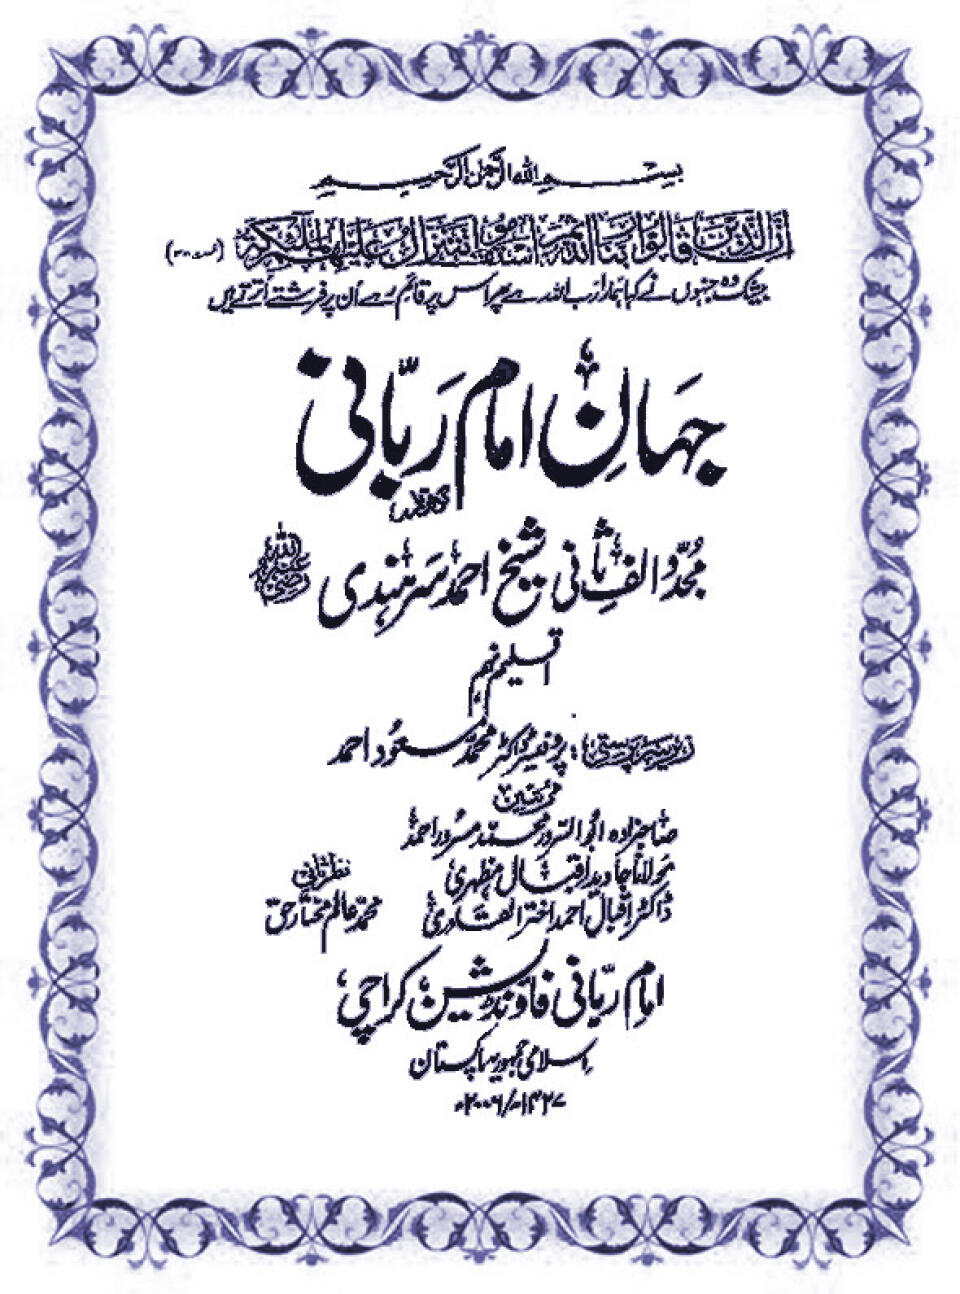 بسم الله الرحمن الرحيم
ان الذين قالوا ربنا الله ثم استقاموا تتنزل عليهم الملئكة
بیشک وہ جنہوں نے کہا ہمارا رب اللہ ہے پھر اس پر قائم رہے اُن پر فرشتے اُترتے ہیں
جہانِ امام رَبّانی
مُجدّد الفِ ثانی شیخ احمد سَرہندی رضی اللہ عنہ
اقلیم نہم
زیر سرپرستی: پروفیسر ڈاکٹر محمد مسعود احمد
مرتبین
صاحبزادہ ابو السرور محمد مسرور احمد
مولانا جاوید اقبال مظہری
نظر ثانی
ڈاکٹر اقبال احمد اختر القادری
محمد عالم مختار حق
امام ربّانی فاؤنڈیشن، کراچی
اسلامی جمہوریہ پاکستان
۱۴۲۷ھ/۲۰۰۶ء